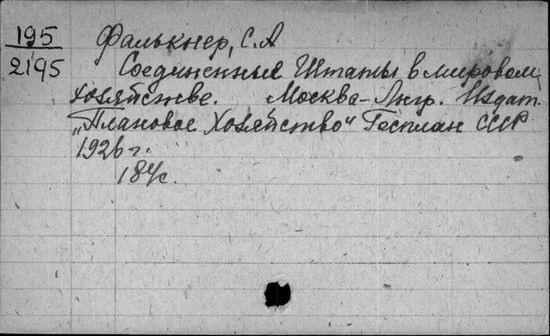 195
2195
Фалькнер, С. А
Соединенные Штаты в мировом
хозяйстве. Москва-Лнгр. Издат.
„Плановое Хозяйство" Госплан СССР
1926 г.
184 с.